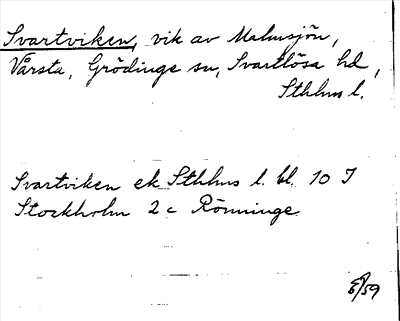 Svartviken, vik av Malmsjön,
Vårsta, Grödinge sn, Svartlösa hd,
Sthlms l.
Svartviken ek Sthlms l. bl. 10 I
Stockholm 2 c Rönninge.
/59